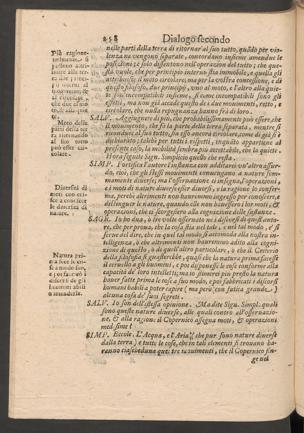 258 Dialogo secondo
nelle parti della terra di ritornar'al suo tutto, quãdo per violen-
za ne vengono separate, concordano insieme amendue le
posizioni; e solo dissentono nell'operazion del tutto; che que-
sta vuole, che per principio interno stia immobile, e quella gli
attribuisce il moto circolare; ma per la vostra concessione, e di
questo filosofo, due principii, vno al moto, e l'altro alla quie-
te son compatibili insieme, si come compatibili sono gli
effetti, ma non già accade questo de i due mouimenti, retto, e
circolare, che nulla repugnanza hanno fra di loro.
SALV. Aggiugnete di più, che probabilissimamente può essere, che
il mouimento, che fà la parte della terra separata, mentre si
riconduce al suo tutto, sia esso ancora circolare, come di già si è
dichiarato; talche per tutti i rispetti, in quanto appartiene al
presente caso, la mobilità sembra più accettabile, che la quiete.
Hora seguite Sign. Simplicio quello che resta.
SIMP. Fortifica l'autore l'instanza con additarci vn'altro assur-
do, cioè, che gli stessi mouimenti conuengano a nature som-
mamente diuerse; ma l'osseruazione ci insegna, l'operazioni
e i moti di nature diuerse esser diuersi, e la ragione lo confer-
ma, perche altramente non haremmo ingresso per conoscere e
distinguer le nature, quando elle non hauessero i lor moti, &
operazioni, che ci scorgessero alla cognizione delle sustanze.
SAGR. Io hò due, o tre volte osseruato ne i discorsi di quest'auto-
re, che per proua, che la cosa stia nel tale, e nel tal modo, e' si
serue del dire, che in quel tal modo si accomoda alla nostra in-
telligenza, ò che altramente non haremmo adito alla cogni-
zione di questo, ò di quell'altro particolare, ò che il Criterio
della filosofia si guasterebbe, quasi che la natura prima facesse
il ceruello a gli huomini, e poi disponesse le cose conforme alla
capacità de' loro intelletti; ma io stimerei più presto la natura
hauer fatte prima le cose a suo modo, e poi fabbricati i discorsi
humani habili a poter capire (ma però con fatica grande)
alcuna cosa de' suoi segreti.
SALV. Io son dell'istessa opinione. Ma dite Sigu. Simpl. quali
sono queste nature diuerse, alle quali contro all'osseruazio-
ne, & alla ragione il Copernico assegna moti, & operazioni
medesime?
SIMP. Eccole. L'Acqua, e l'Aria (che pur sono nature diuerse
dalla terra) e tutte le cose, che in tali elementi si trouano ha-
ranno ciascheduna quei tre mouimenti, che il Copernico fin-
ge nel
Moto delle
parti della ter
ra ritornando
al suo tutto
può esser cir-
colare.
Diuersità di
moti con-
fe-
risce a conoscer
le diuersità di
nature.
Natura pri-
ma fece le co-
se a modo suo,
e poi fabricò i
discorsi de gli
huomini abili
a intenderle.